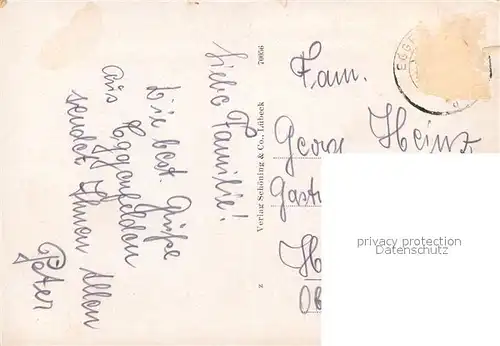 Liebe Familie!
Die best. Grüße
aus Eggenfelden
sendet Ihnen Allen
Peter
Verlag Schöning & Co., Lübeck
70056
Fam.
Georg Heinz
EGG
privacy protection
Datenschutz